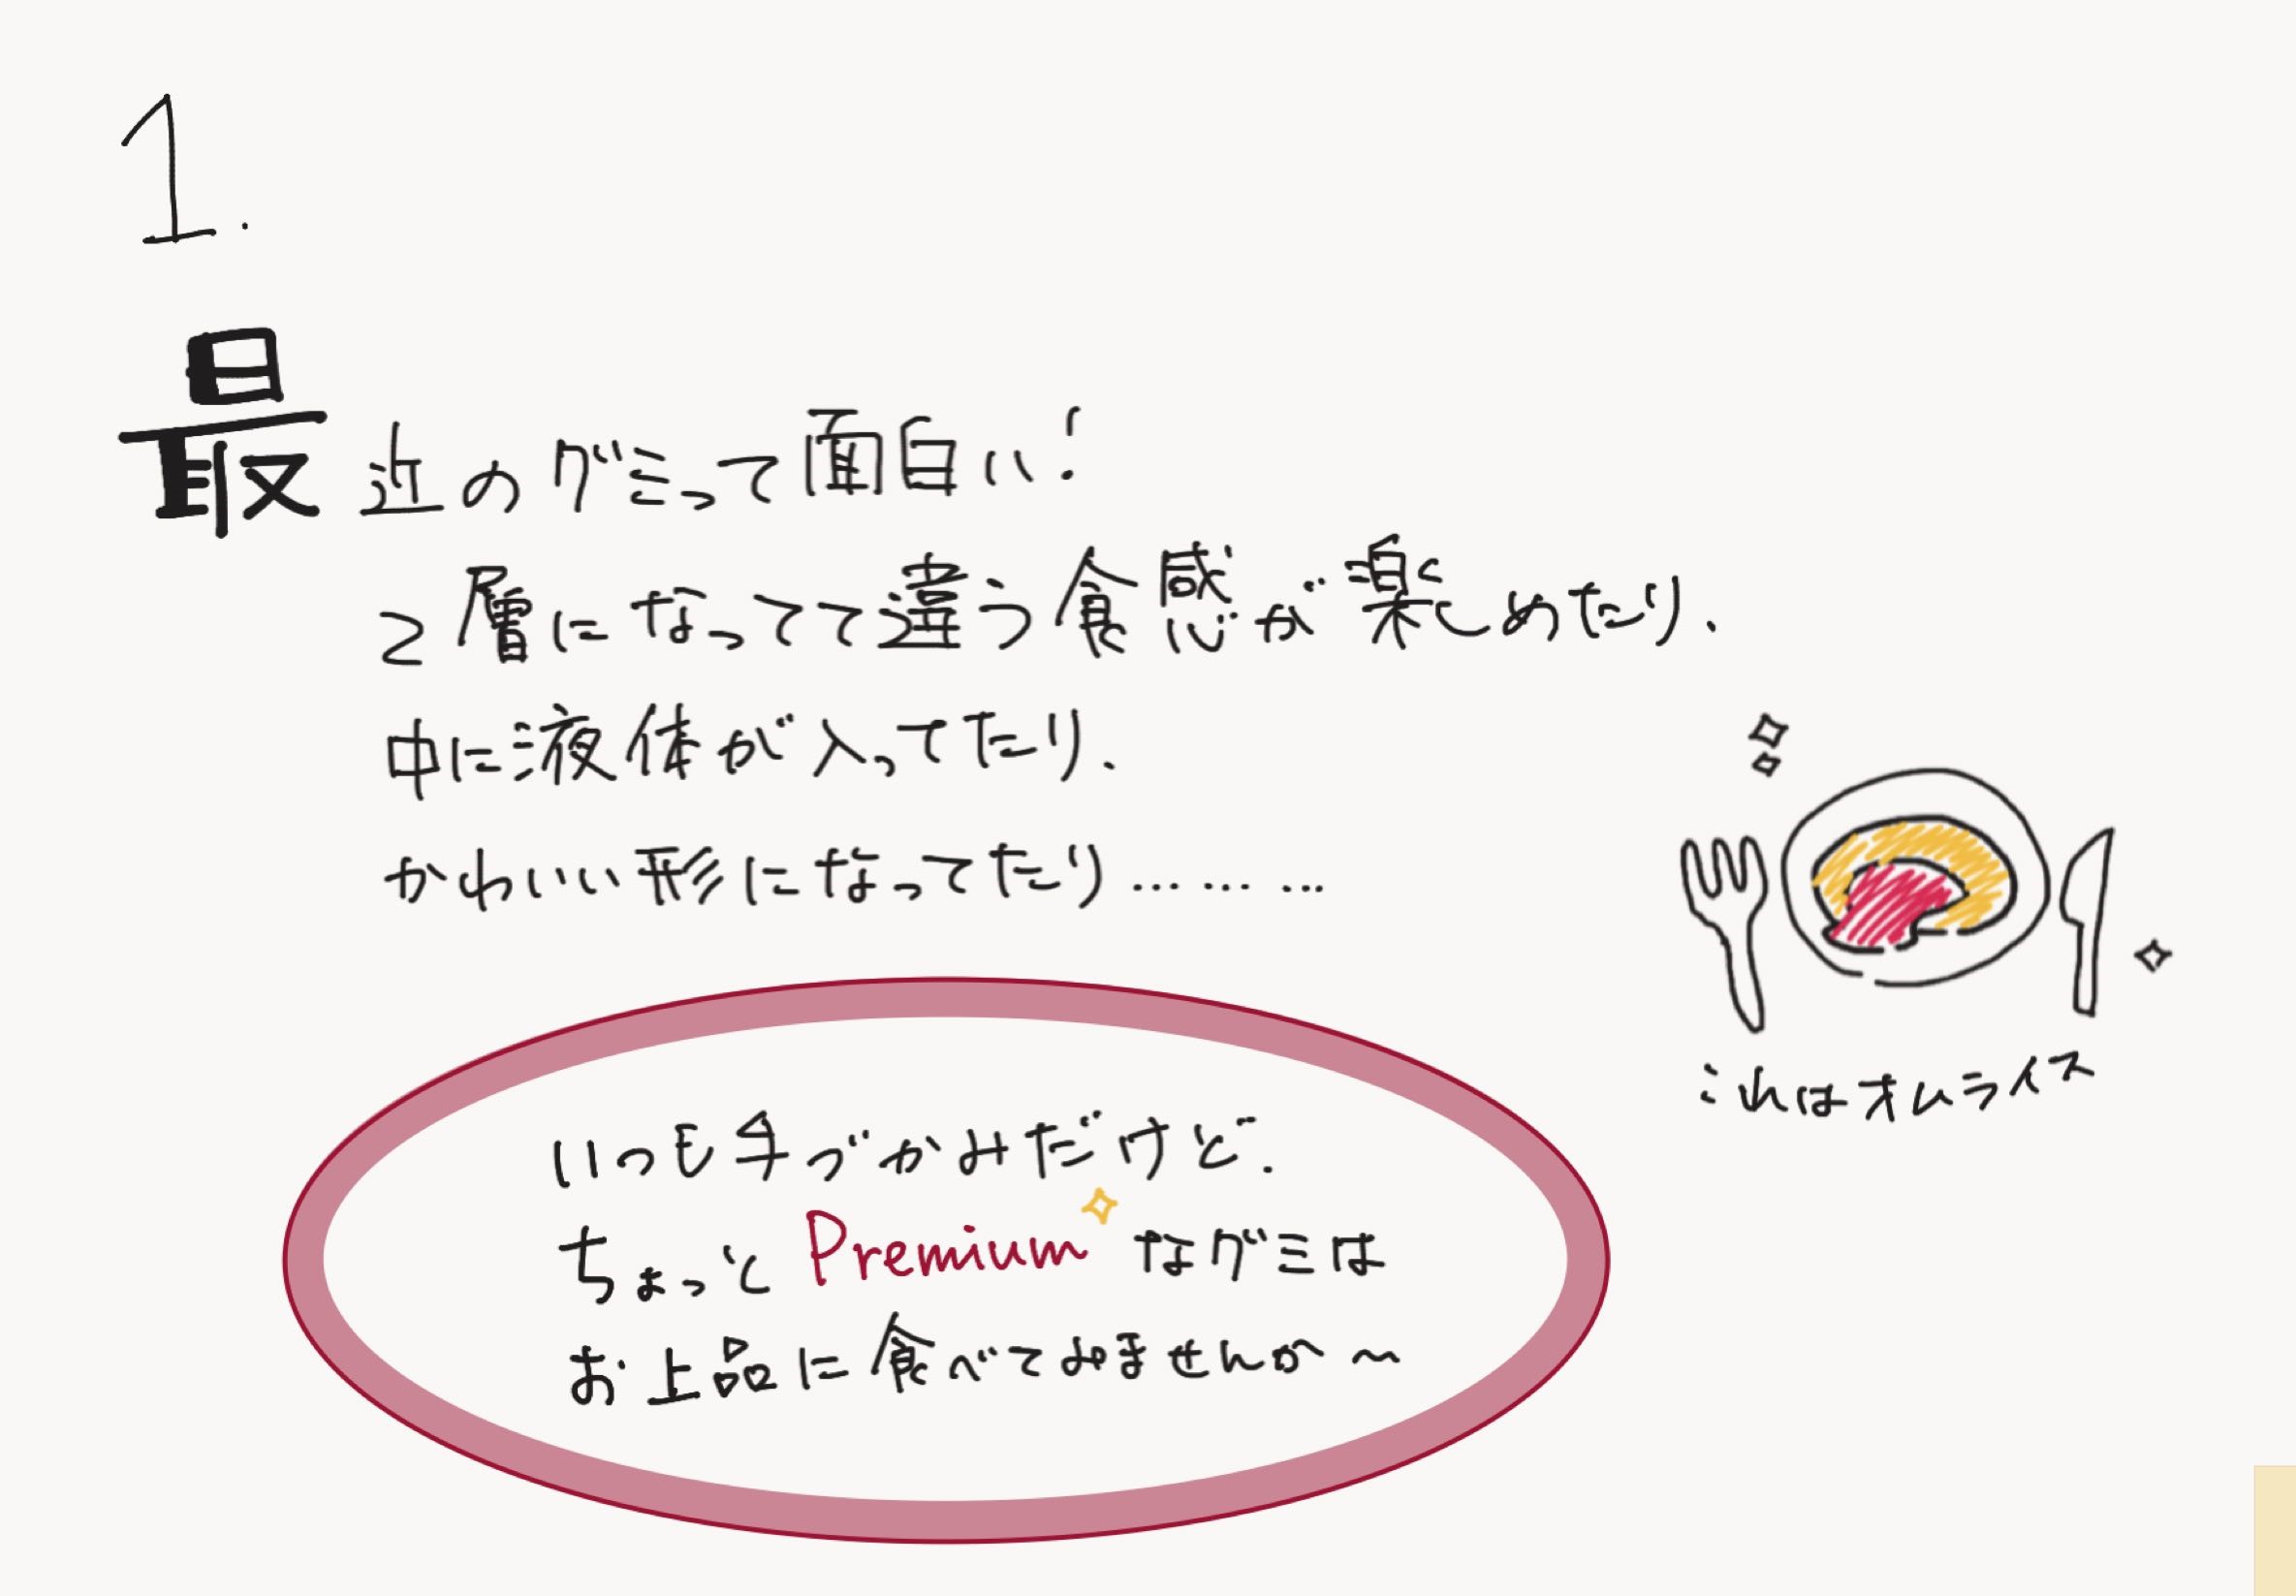 1.
最近のグミって面白い!
2層になってて違う食感が楽しめたり、
中に液体が入ってたり、
かわいい形になってたり………
これはオムライス
いつも手づかみだけど、
ちょっとPremiumなグミは
お上品に食べてみませんか〜